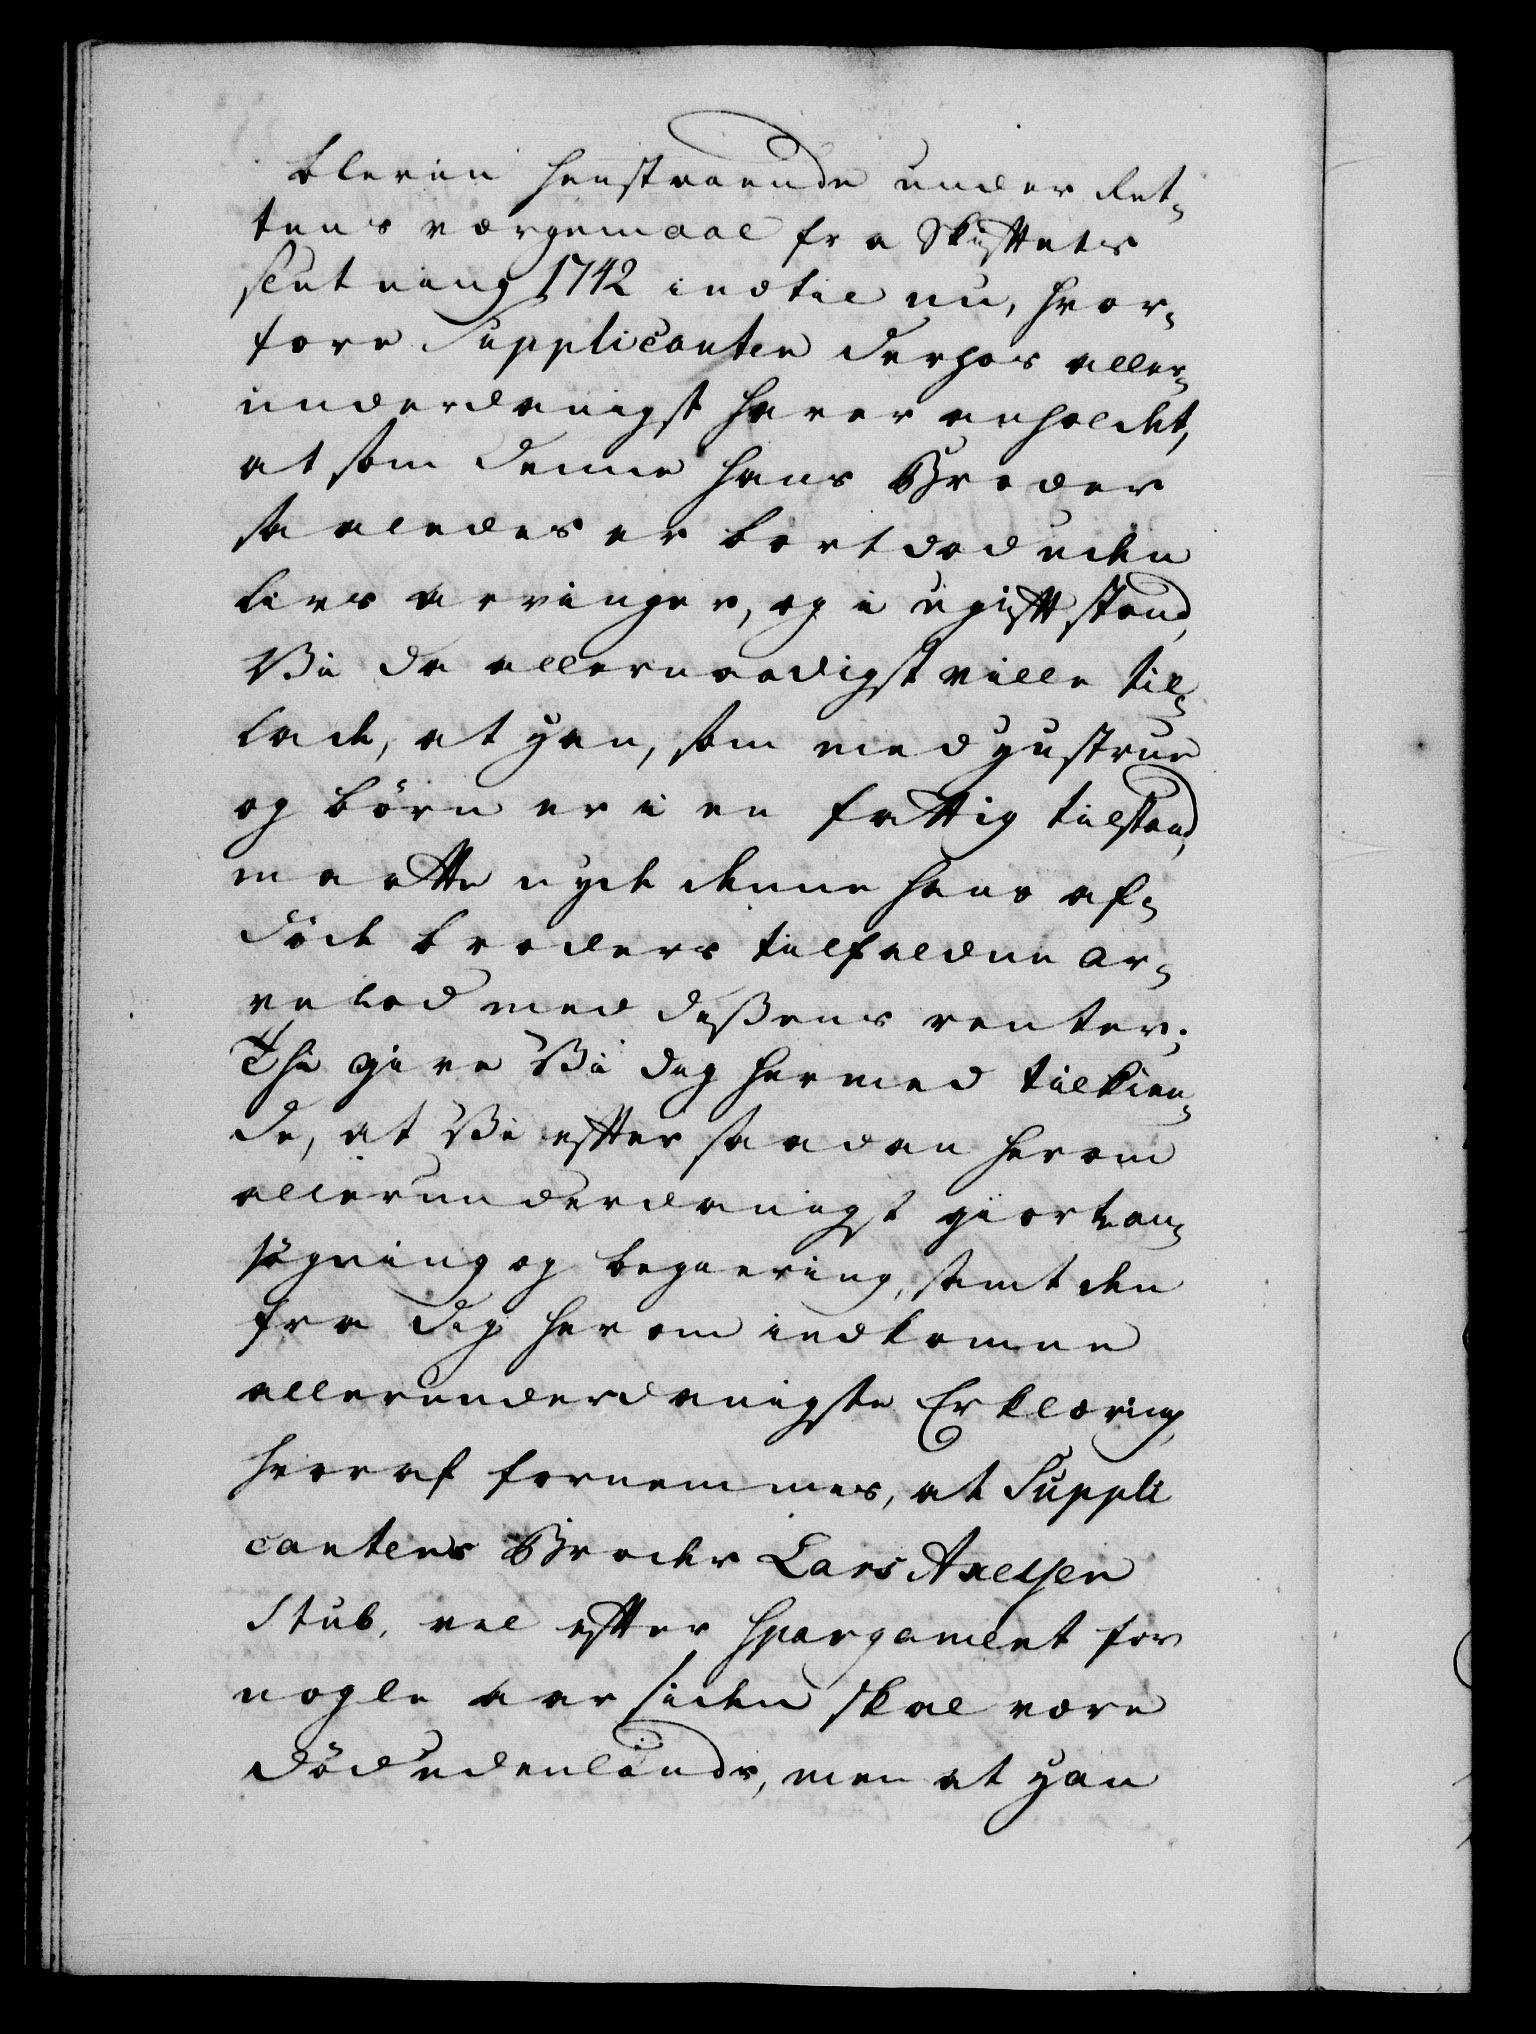 bleven henstaaende under Ret¬
tens værgemaal fra Skifftets
slutning 1742 indtil nu, hvor¬
fore Supplicanten derhos aller¬
underdanigst haver anholdet,
at som denne hans Broder
saaledes er bortdød uden
livs arvinger, og i ugifft stand,
Vi da allernaadigst ville til¬
lade, at han, som med hustrue
og börn er i en fattig tilstand,
maatte nyde denne hans af¬
döde broders tilfaldne ar¬
ve lod med dessens renter.
Thi give Vi dig hermed tilkien¬
de, at Vi effter saadan herom
allerunderdanigst giort an¬
søgning og begiering, samt den
fra dig herom indkomne
allerunderdanigste Erklæring,
hvoraf fornemmes, at Suppli
cantens Broder Lars Axelsen
Stub, vel effter Spargament for
nogle aar siden skal være
död udenlands, men at han